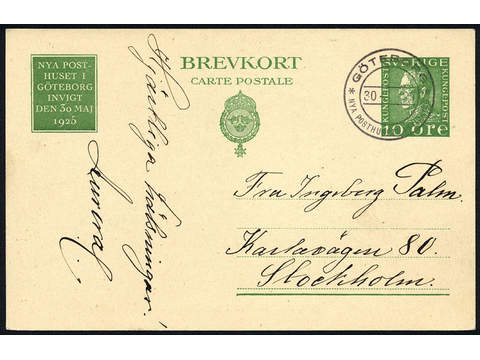 NYA POST-
HUSET I
GÖTEBORG
INVIGT
DEN 30 MAJ
1925
BREVKORT
CARTE POSTALE
SVERIGE
KUNGÖPOST
10 ÖRE
GÖTEBORG
30
* NYA POSTHUSET
Hjärtliga hälsningar!
Fru Ingeborg Palm.
Karlavägen 80.
Stockholm.